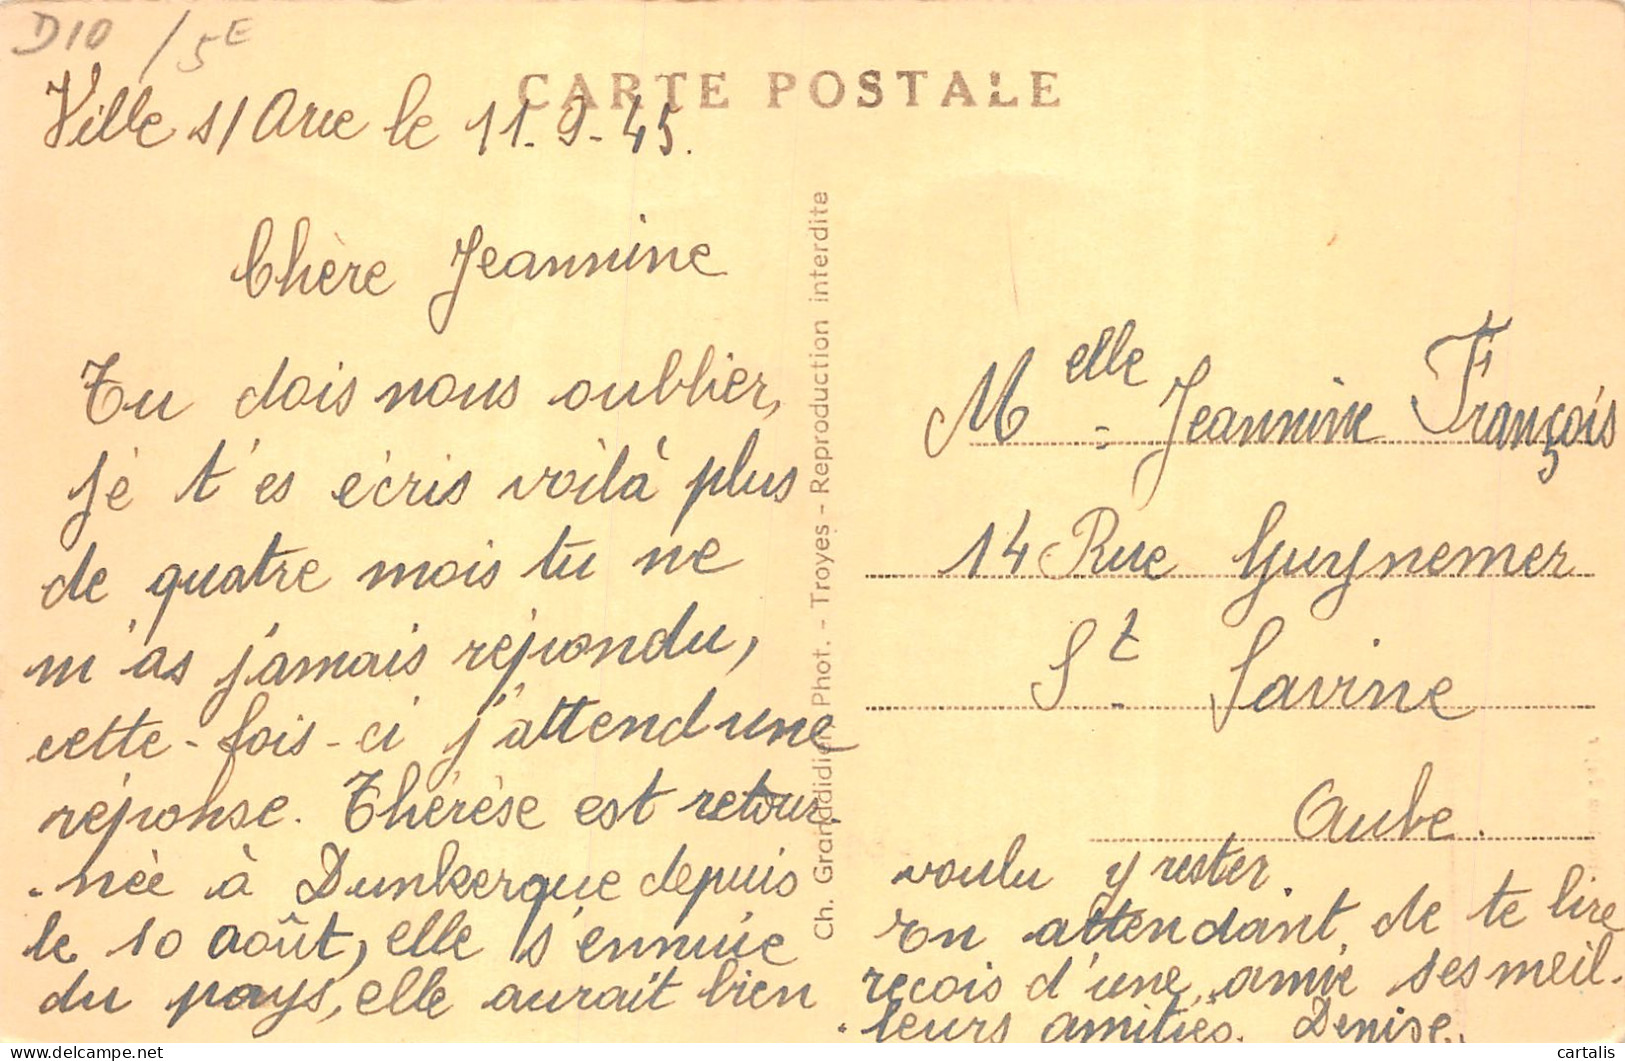 D10 / 5E
CARTE POSTALE
Ville s/ Arce le 11-9-45.
Chère Jeannine
Tu dois nous oublier,
je t'es écris voilà plus
de quatre mois tu ne
m'as jamais répondu,
cette-fois-ci j'attend une
réponse. Thérèse est retour-
-née à Dunkerque depuis
le 10 août, elle s'ennuie
du pays, elle aurait bien
voulu y rester.
En attendant, de te lire
reçois d'une amie ses meil-
-leurs amitiés. Denise.
Ch. Grandidier, Phot. - Troyes - Reproduction interdite
Melle Jeannine François
14 Rue Guynemer
St Savine
Aube.
cartalis